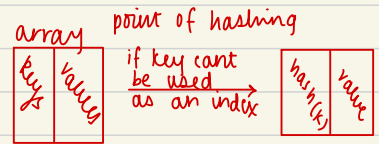 point of hashing
array
keys
values
if key cant
be used
as an index
hash(k)
value